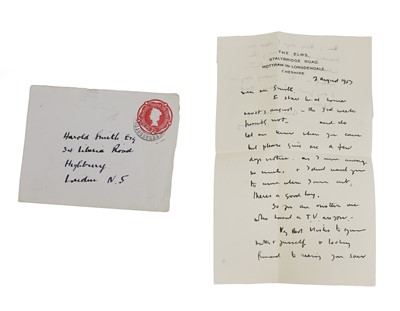 Harold Smith Esq
34 Liberia Road
Highbury
London N.5
THE ELMS,
STALYBRIDGE ROAD,
MOTTRAM-IN-LONGDENDALE,
CHESHIRE
2 August 1957
Smith,
I shall be at home
most of August - the 3rd week
not. and do
let me know when you come
but please give me a few
days notice. as I move among
so much, & I don't want you
to come when I'm out,
there's a good boy.
So you are another one
who had a T.V. as you.
My best wishes to your
mother & yourself & looking
forward to seeing you soon